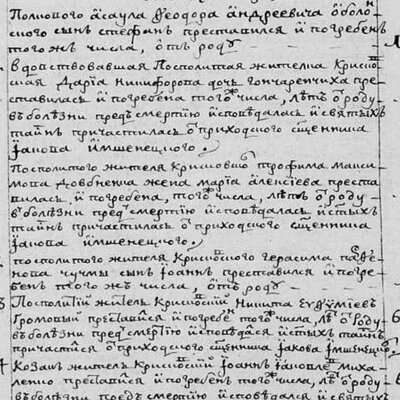 Полковаго асаула Ѳеодора Андреевича Оболон
ского сынъ Стефанъ преставился и погребенъ
того жъ числа, ѿ роду
вдовствовавшая Посполитая жителка Крисков
ская Дарїа Никифорова дочь Гончаренчиха пре
ставилась и погребена того числа, лѣтъ ѿ роду
въ болѣзни предъ смертїю исповѣдалась и святыхъ
таинъ причастилась ѿ приходского священника
Іакова Имшенецкого.
Посполитого жителя Крисковского Трофима Макси
мова Довбненка жена Марїа Алексїева преста
вилась, и погребена, того числа, лѣтъ ѿ роду
въ болѣзни предъ смертїю исповѣдалась, и стыхъ
таинъ причастилась ѿ приходского священника
Іакова Имшенецкого.
посполитого жителя Крисковского Герасима
нова Чучмы сынъ Іоаннъ преставился и погре
бенъ того жъ числа, ѿ роду
Посполитїй житель Крисковскїй Никита Еуѳимїевъ
Громовый преставися и погребенъ того числа, лѣтъ ѿ роду
въ болѣзни предъ смертїю исповѣдася и стыхъ таинъ
причастися ѿ приходского священника Іакова Имшенецкого
Козакъ житель Крисковскїй Іоаннъ Іаковлевъ Миха
ленко преставися и погребенъ того числа, лѣтъ ѿ роду
въ болѣзни предъ смертїю исповѣдался и святыхъ